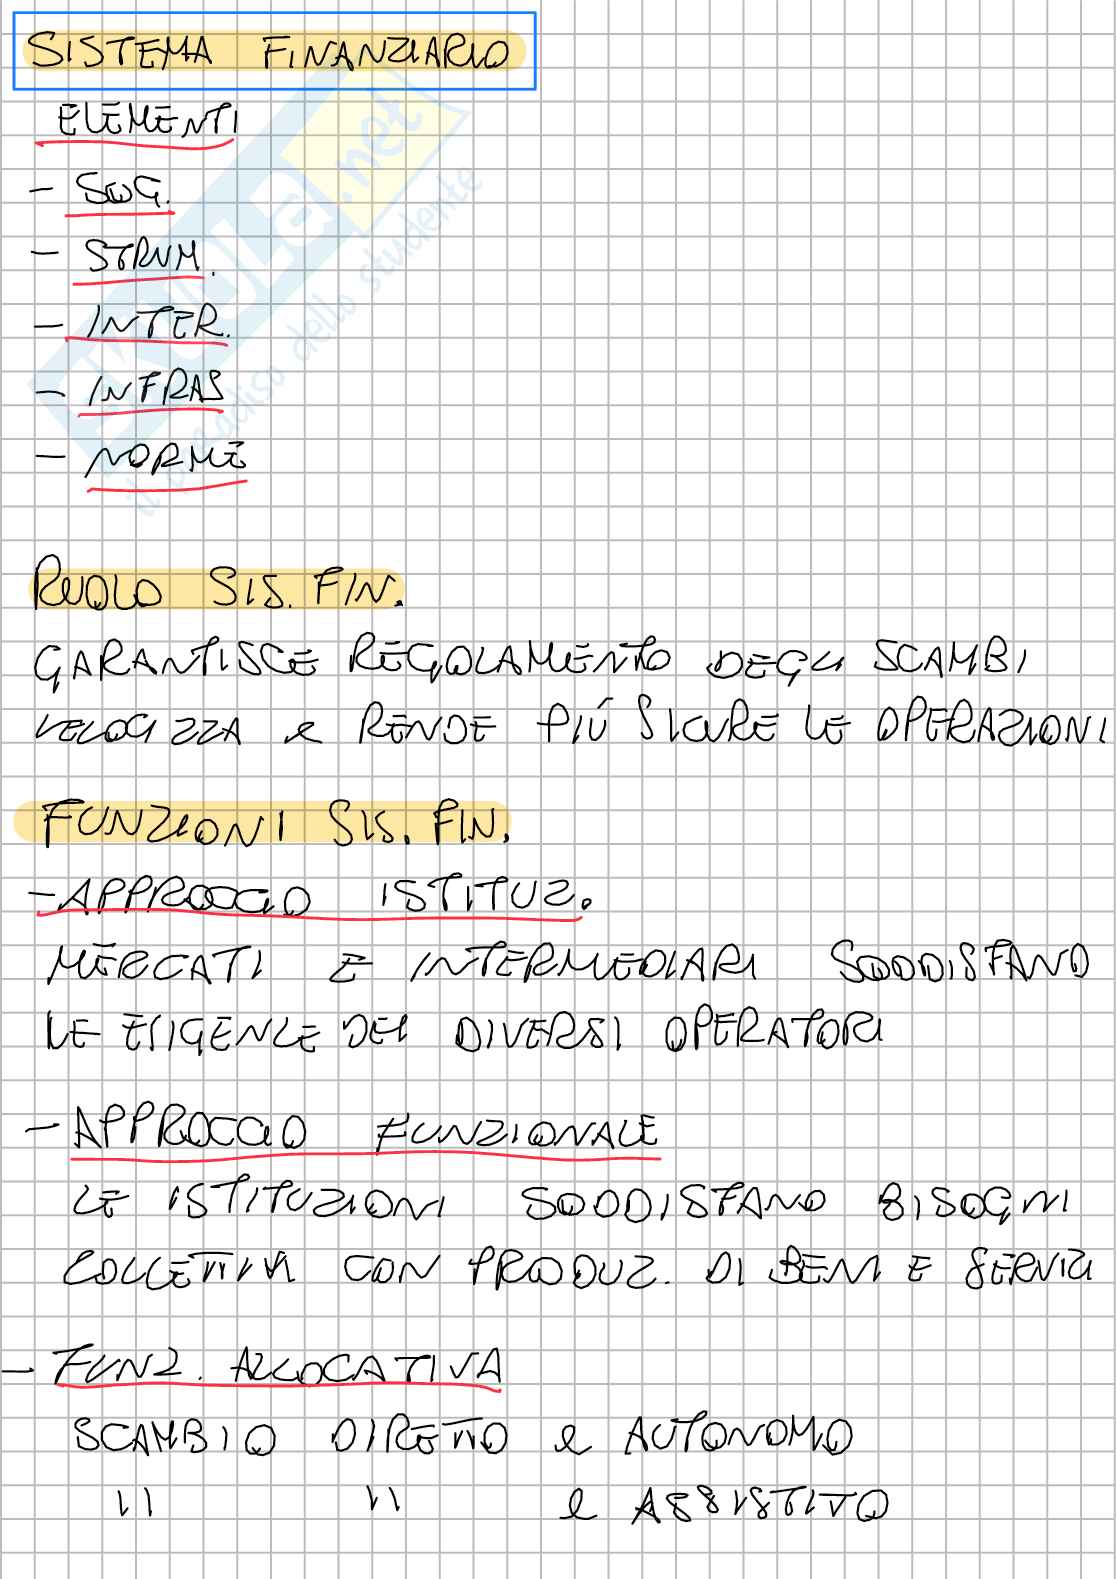 SISTEMA FINANZIARIO
ELEMENTI
- SOG.
- STRUM.
- INTER.
- INFRAS
- NORME
RUOLO SIS. FIN.
GARANTISCE REGOLAMENTO DEGLI SCAMBI
VELOCIZZA e RENDE PIÚ SICURE LE OPERAZIONI
FUNZIONI SIS. FIN.
- APPROCCIO ISTITUZ.
MERCATI E INTERMEDIARI SODDISFANO
LE ESIGENZE DEI DIVERSI OPERATORI
- APPROCCIO FUNZIONALE
LE ISTITUZIONI SODDISFANO BISOGNI
COLLETTIVI CON PRODUZ. DI BENI E SERVIZI
- FUNZ. ALLOCATIVA
SCAMBIO DIRETTO e AUTONOMO
" " e ASSISTITO
SKUOLA.net
il paradiso dello studente